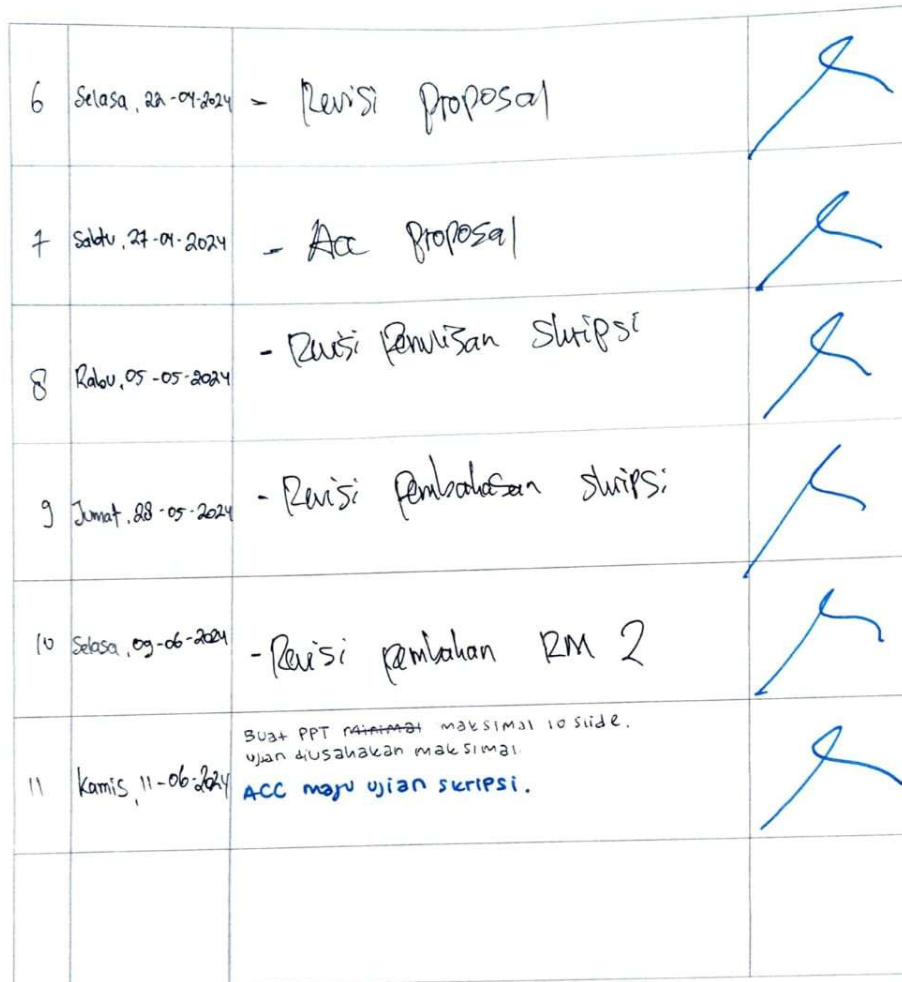 6 Selasa, 22-04-2024 - Revisi Proposal
7 Sabtu, 27-04-2024 - Acc Proposal
8 Rabu, 05-05-2024 - Revisi Penulisan Skripsi
9 Jumat, 28-05-2024 - Revisi pembahasan skripsi
10 Selasa, 09-06-2024 - Revisi pembahan RM 2
Buat PPT minimal maksimal 10 slide.
ujian diusahakan maksimal
11 Kamis, 11-06-2024 ACC maju ujian skripsi.